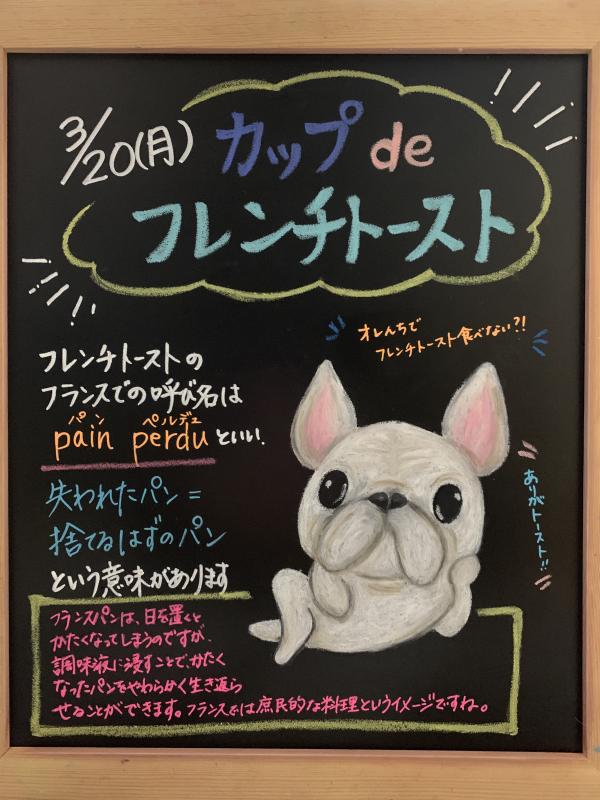 3/20(月) カップ de
フレンチトースト
オレんちで
フレンチトースト食べない?!
フレンチトーストの
フランスでの呼び名は
パン ペルデュ
pain perduといい、
失われたパン=
捨てるはずのパン
という意味があります
ありがトースト!!
フランスパンは、日を置くと
かたくなってしまうのですが、
調味液に浸すことで、かたく
なったパンをやわらかく生き返ら
せることができます。フランスでは庶民的な料理というイメージですね。